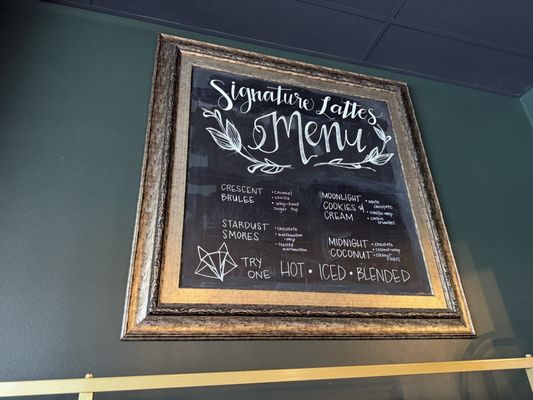 Signature Lattes
Menu
CRESCENT
BRULEE
• caramel
• vanilla
• whip - burnt
sugar top
MOONLIGHT
COOKIES &
CREAM
• white
chocolate
• vanilla whip
• cookie
crumbles
STARDUST
SMORES
• chocolate
• marshmallow
whip
• toasted
marshmallow
MIDNIGHT
COCONUT
• chocolate
• coconut whip
• coconut
TRY
ONE
HOT • ICED • BLENDED